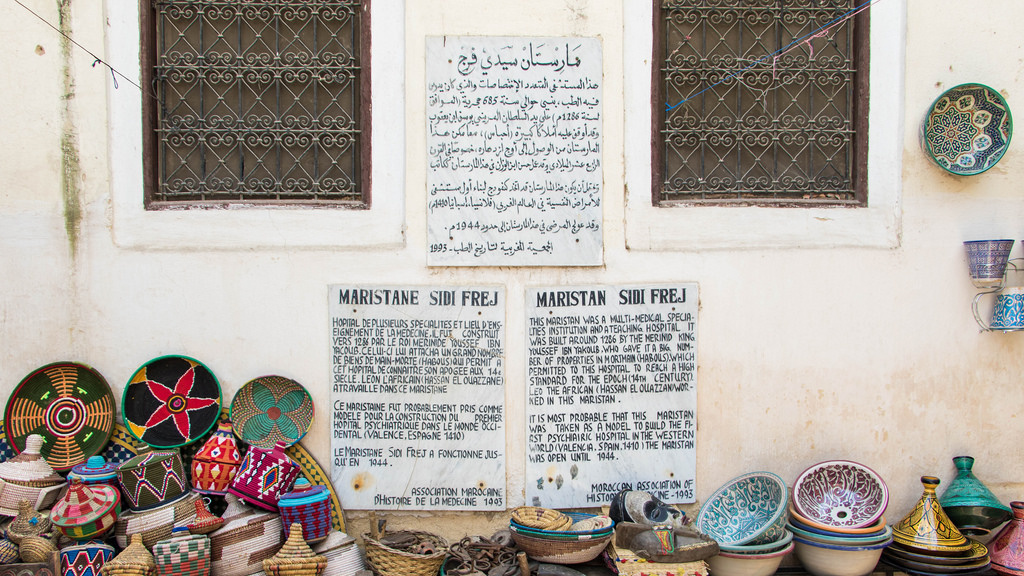 مارستان سيدي فرج
هذا المارستان المتعدد الإختصاصات والذي كان يدرس
فيه الطب، بني حوالي سنة 685 هجرية (الموافق
لسنة 1286م) على يد السلطان المريني يوسف بن يعقوب
وقد أوقف عليه أملاكا كبيرة (أحباس)، مما مكن هذا
المارستان من الوصول إلى أوج ازدهاره، خصوصا في القرن
الرابع عشر الميلادي وقد عمل حسن بن الوزان في هذا المارستان ككاتب
هذا المارستان قد اتخذ كنموذج لبناء أول مستشفى
للأمراض النفسية في العالم الغربي (فلانسيا، إسبانيا 1410م)
وقد عولج المرضى في هذا المارستان إلى حدود 1944م.
الجمعية المغربية لتاريخ الطب - 1993
MARISTANE SIDI FREJ
HOPITAL DE PLUSIEURS SPECIALITES ET LIEU D'ENS-
EIGNEMENT DE LA MEDECINE, IL FUT CONSTRUIT
VERS 1286 PAR LE ROI MERINIDE YOUSSEF IBN
YACOUB. CELUI-CI LUI ATTACHA UN GRAND NOMBRE
DE BIENS DE MAIN-MORTE (HABOUS) QUI PERMIT A
CET HOPITAL DE CONNAITRE SON APOGEE AUX 14e
SIECLE. LEON L'AFRICAIN (HASSAN EL OUAZZANE)
A TRAVAILLE DANS CE MARISTANE
CE MARISTAINE FUT PROBABLEMENT PRIS COMME
MODELE POUR LA CONSTRUCTION DU PREMIER
HOPITAL PSYCHIATRIQUE DANS LE MONDE OCCI-
DENTAL (VALENCE, ESPAGNE 1410)
LE MARISTAINE SIDI FREJ A FONCTIONNE JUS-
QU'EN 1944.
ASSOCIATION MAROCAINE
D'HISTOIRE DE LA MEDECINE 1993
MARISTAN SIDI FREJ
THIS MARISTAN WAS A MULTI-MEDICAL SPECIA-
LITIES INSTITUTION AND A TEACHING HOSPITAL. IT
WAS BUILT AROUND 1286 BY THE MERINID KING
YOUSSEF IBN YAKOUB WHO GAVE IT A BIG NUM-
BER OF PROPERTIES IN MORTMAIN (HABOUS), WHICH
PERMITTED TO THIS HOSPITAL TO REACH A HIGH
STANDARD FOR THE EPOCH (14TH CENTURY).
LEO THE AFRICAN (HASSAN EL OUAZZAN) WOR-
KED IN THIS MARISTAN.
IT IS MOST PROBABLE THAT THIS MARISTAN
WAS TAKEN AS A MODEL TO BUILD THE FI-
RST PSYCHIAIRIC HOSPITAL IN THE WESTERN
WORLD (VALENCIA, SPAIN, 1410) THE MARISTAN
WAS OPEN UNTIL 1944.
MOROCCAN ASSOCIATION OF
HISTORY MEDICINE-1993